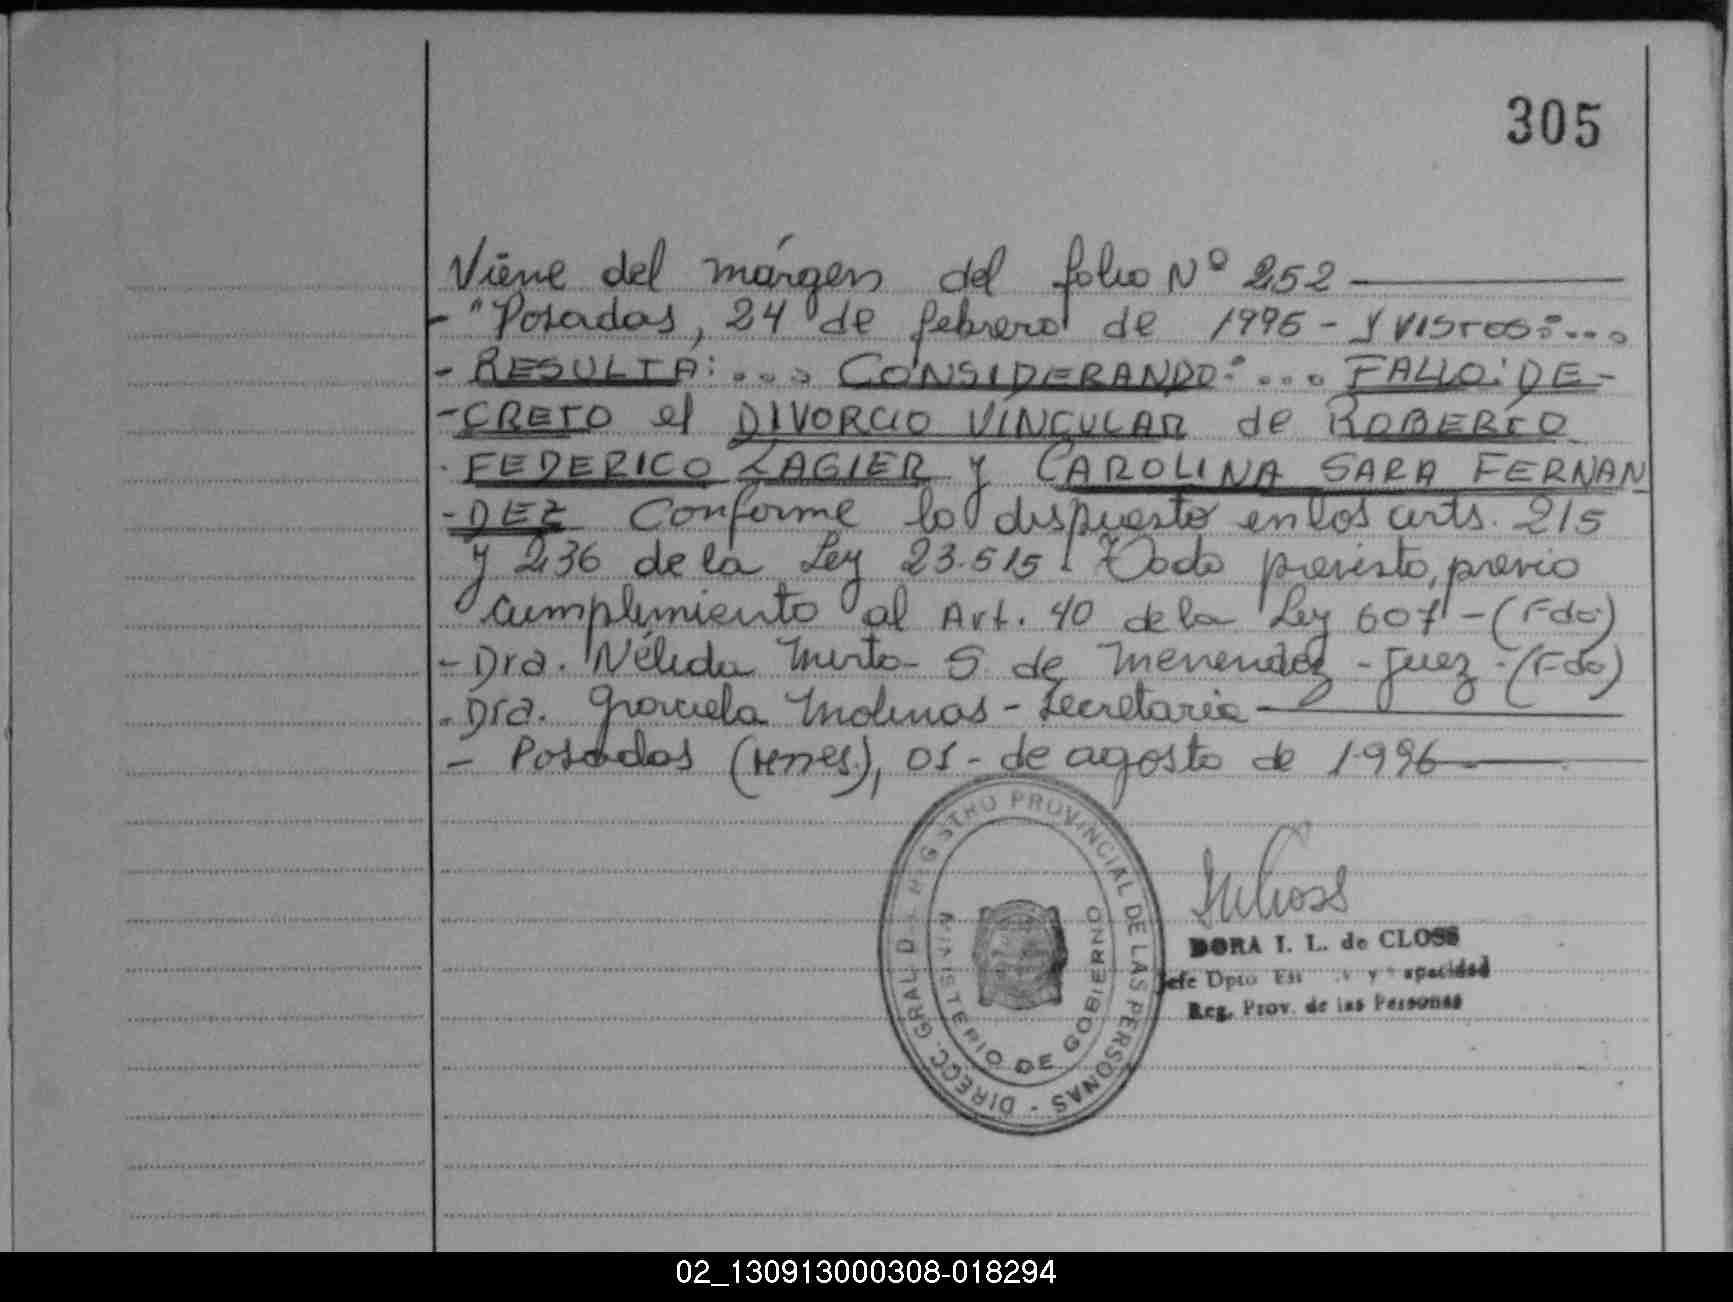 305
Viene del márgen del folio Nº 252
- "Posadas, 24 de febrero de 1995 - Y VISTOS:...
- RESULTA:.... CONSIDERANDO:.... FALLO: DE-
- CRETO el DIVORCIO VINCULAR de ROBERTO
FEDERICO ZAGIER y CAROLINA SARA FERNAN
- DEZ Conforme lo dispuesto en los arts. 215
y 236 de la Ley 23.515. previsto, previo
cumplimiento al Art. 40 de la Ley 607 - (Fdo)
- Dra. Nélida Mirta S. de Menendez - Juez - (Fdo)
- Dra. Graciela Molinas - Secretaria
- Posadas (Mnes), 01 - de agosto de 1996
DIRECC. GRAL. D REGISTRO PROVINCIAL DE LAS PERSONAS -
MINISTERIO DE GOBIERNO
DORA I. L. de CLOSS
Jefe Dpto Es y apacidad
Reg. Prov. de las Personas
02_130913000308-018294